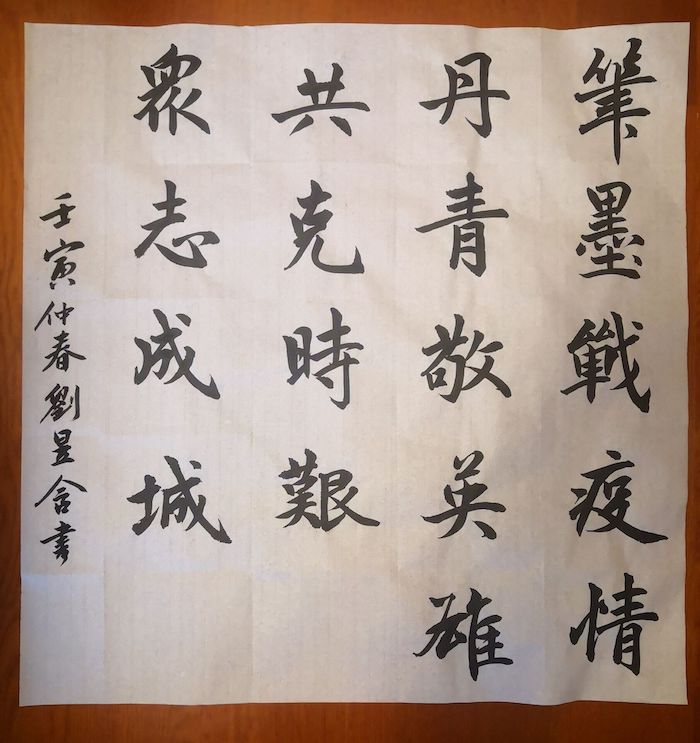 筆墨戰疫情
丹青敬英雄
共克時艱
衆志成城
壬寅仲春劉昱含書